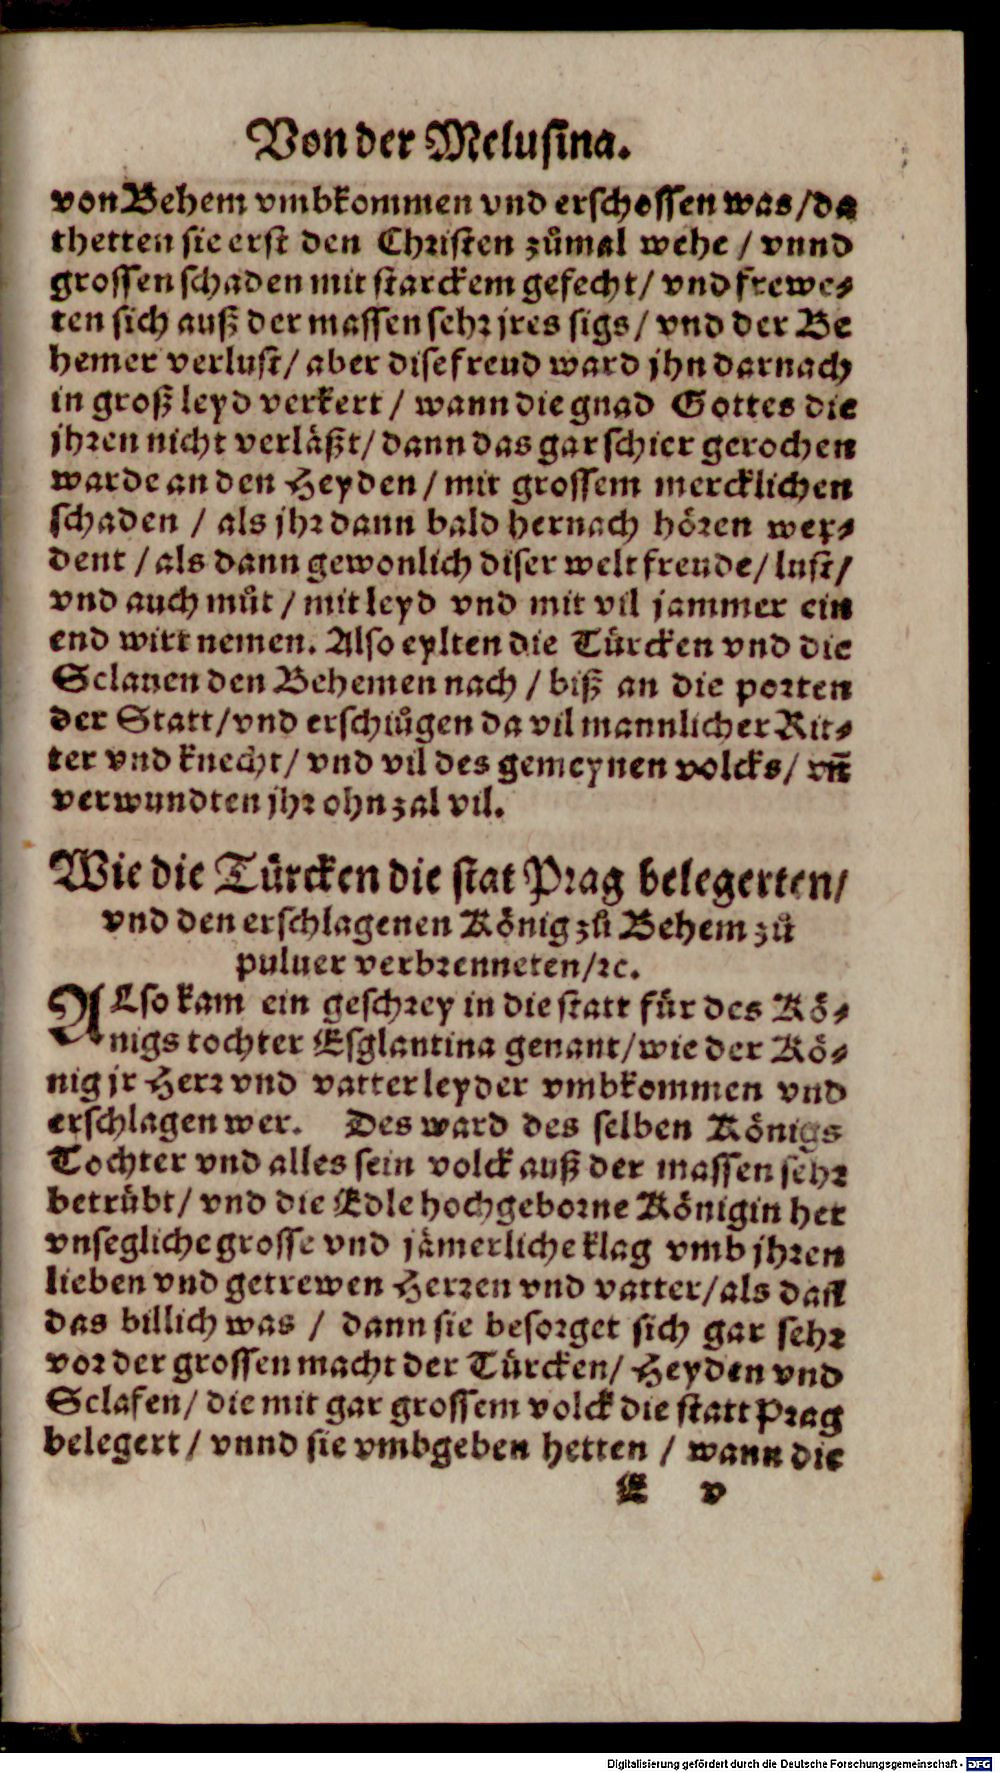 Von der Melusina.
von Behem vmbkommen vnd erschossen was/da
thetten sie erst den Christen zůmal wehe / vnnd
grossen schaden mit starckem gefecht/ vnd frewe-
ten sich auß der massen sehr jres sigs/ vnd der Be
hemer verlust/ aber dise freud ward jhn darnach
in groß leyd verkert / wann die gnad Gottes die
jhren nicht verläßt/ dann das gar schier gerochen
warde an den Heyden / mit grossem mercklichen
schaden / als jhr dann bald hernach hören wer-
dent / als dann gewonlich diser welt freude/ lust/
vnd auch můt / mit leyd vnd mit vil jammer ein
end wirt nemen. Also eylten die Türcken vnd die
Sclauen den Behemen nach / biß an die porten
der Statt/vnd erschlůgen da vil mannlicher Rit-
ter vnd knecht/ vnd vil des gemeynen volcks/ vñ
verwundten jhr ohn zal vil.
Wie die Türcken die stat Prag belegerten/
vnd den erschlagenen König zů Behem zů
puluer verbrenneten/ꝛc.
ALso kam ein geschrey in die statt für des Kö-
nigs tochter Esglantina genant/wie der Kö-
nig jr Herr vnd vatter leyder vmbkommen vnd
erschlagen wer. Des ward des selben Königs
Tochter vnd alles sein volck auß der massen sehr
betrübt/ vnd die Edle hochgeborne Königin het
vnsegliche grosse vnd jämerliche klag vmb jhren
lieben vnd getrewen Herren vnd vatter/als dañ
das billich was / dann sie besorget sich gar sehr
vor der grossen macht der Türcken/ Heyden vnd
Sclafen/ die mit gar grossem volck die statt Prag
belegert / vnnd sie vmbgeben hetten / wann die
E v
Digitalisierung gefördert durch die Deutsche Forschungsgemeinschaft - DFG